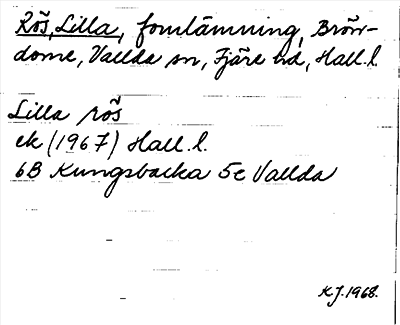 Rös, Lilla, fornlämning, Brörr-
dome, Vallda sn, Fjäre hd, Hall.l.
Lilla rös
ek (1967) Hall.l.
6B Kungsbacka 5e Vallda
KJ. 1968.